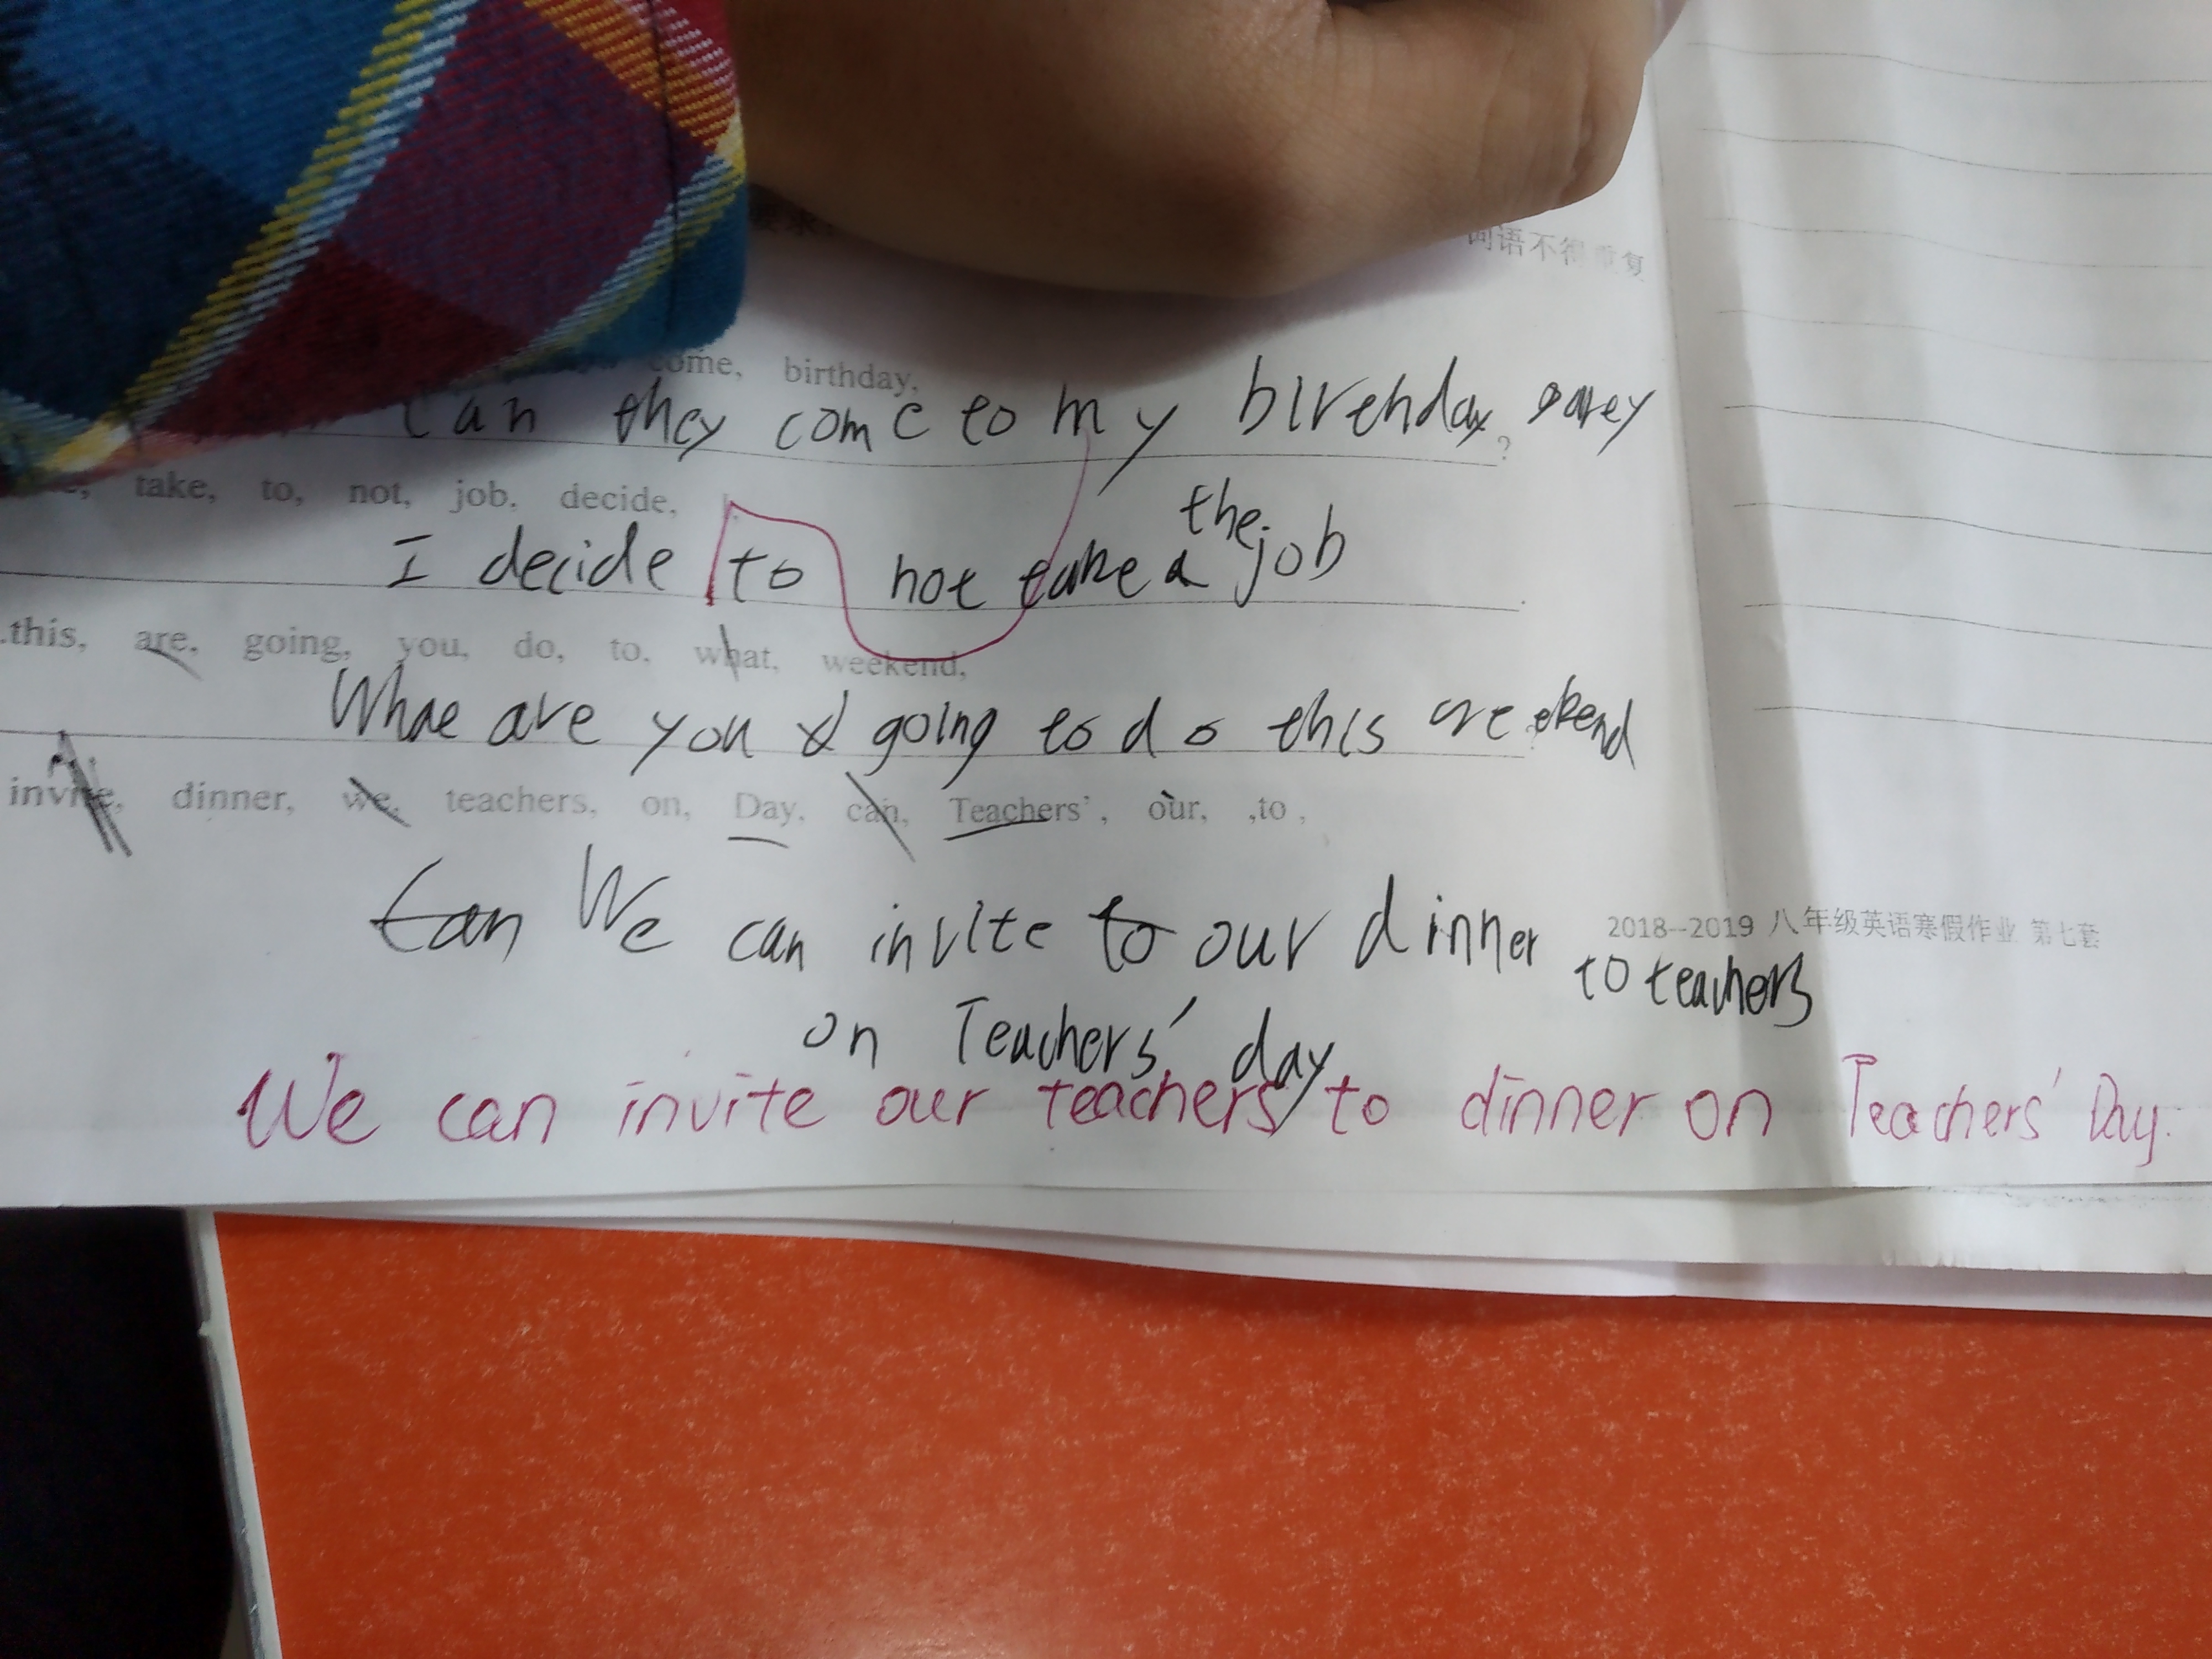 词语不得重复
come, birthday,
Can they come to my birthday party
?
take, to, not, job, decide, I,
the
I decide to not take a job
.this, are, going, you, do, to, what, weekend,
What are you going to do this weekend
invite, dinner, we, teachers, on, Day, can, Teachers', our, ,to ,
Can We can invite to our dinner
2018--2019 八年级英语寒假作业 第七套
to teachers
on Teachers' day
We can invite our teachers to dinner on Teachers' Day.